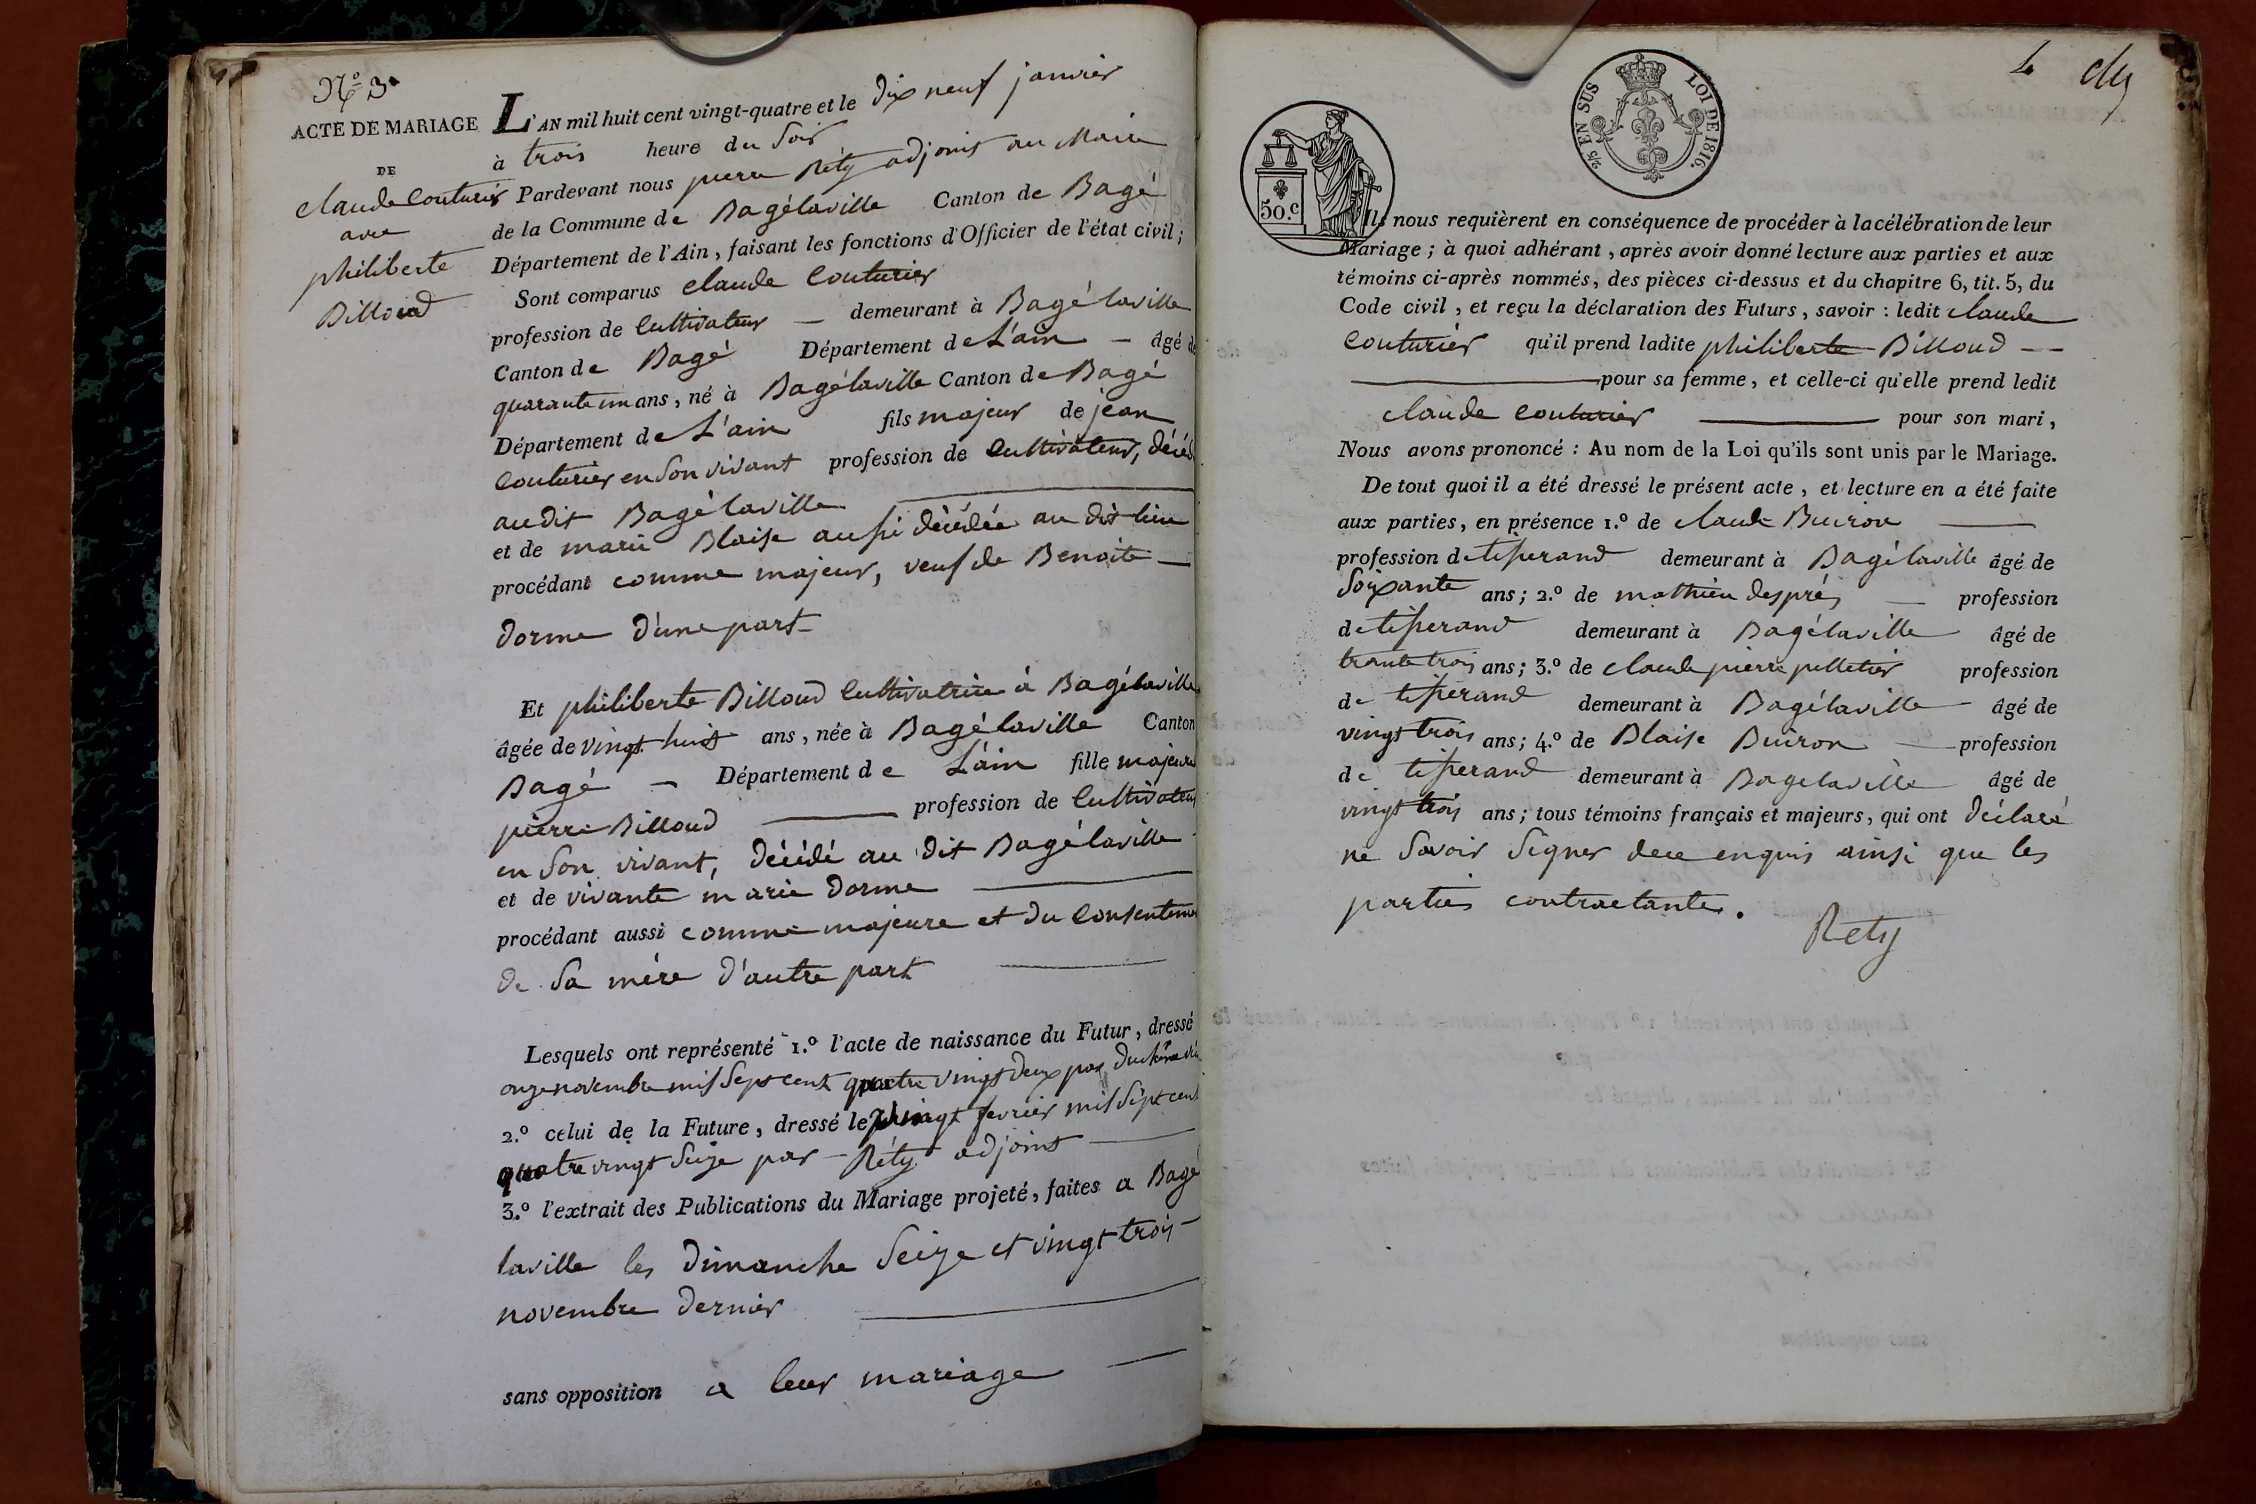 N.º 3.
ACTE DE MARIAGE
DE
claude Couturier
avec
philiberte
Billoud
L'AN mil huit cent vingt-quatre et le dix neuf janvier
à trois heure du Soir
Pardevant nous pierre Réty adjoint au Maire
de la Commune de Bagélaville Canton de Bagé
Département de l'Ain, faisant les fonctions d'Officier de l'état civil;
Sont comparus claude Couturier
profession de Cultivateur — demeurant à Bagé laville
Canton de Bagé Département de L'ain — âgé de
quarante un ans, né à Bagélaville Canton de Bagé
Département de L'ain fils majeur de jean
Couturier en Son vivant profession de Cultivateur, décédé
audit Bagélaville
et de marie Blaise aussi décédée au dit lieu
procédant comme majeur, veuf de Benoite —
dorme d'une part —
Et philiberte Billoud Cultivatrice à Bagélaville
âgée de vingt huit ans, née à Bagélaville Canton
Bagé — Département de L'ain fille majeure
pierre Billoud — profession de Cultivateur
en Son vivant, décédé au dit Bagélaville
et de vivante marie dorme
procédant aussi comme majeure et du Consentement
de Sa mére d'autre part
Lesquels ont représenté 1.º l'acte de naissance du Futur, dressé
onze novembre mil Sept cent quatre vingt deux par duchêne
2.º celui de la Future, dressé le vingt fevrier mil Sept cent
quatre vingt Seize par — Réty adjoint
3.º l'extrait des Publications du Mariage projeté, faites a Bagé
laville les dimanche Seize et vingt trois —
novembre dernier
sans opposition a leur mariage
4
50.c
2/5 EN SUS LOI DE 1816.
Ils nous requièrent en conséquence de procéder à la célébration de leur
Mariage; à quoi adhérant, après avoir donné lecture aux parties et aux
témoins ci-après nommés, des pièces ci-dessus et du chapitre 6, tit. 5, du
Code civil, et reçu la déclaration des Futurs, savoir: ledit claude
Couturier qu'il prend ladite philiberte Billoud — —
pour sa femme, et celle-ci qu'elle prend ledit
claude Couturier pour son mari,
Nous avons prononcé: Au nom de la Loi qu'ils sont unis par le Mariage.
De tout quoi il a été dressé le présent acte, et lecture en a été faite
aux parties, en présence 1.º de claude Buiron
profession de tisserand demeurant à Bagélaville âgé de
Soixante ans; 2.º de mathieu després — profession
de tisserand demeurant à Bagélaville âgé de
trante trois ans; 3.º de claude pierre pelletier profession
de tisserand demeurant à Bagélaville âgé de
vingt trois ans; 4.º de Blaise Buiron — profession
de tisserand demeurant à Bagelaville âgé de
vingt trois ans; tous témoins français et majeurs, qui ont déclaré
ne Savoir Signer dece enquis ainsi que les
parties contractantes.
Réty